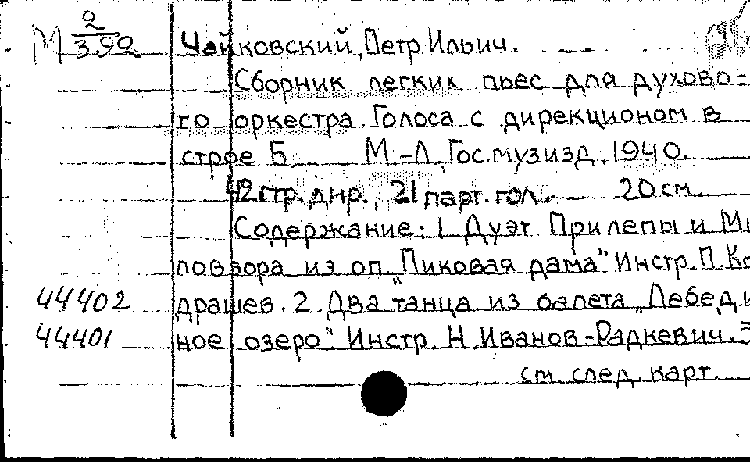 М 2/390 Чайковский, Петр Ильич.
Сборник легких пьес для духово-
го оркестра. Голоса с дирекционом в
строе Б М.-Л., Гос.музизд. 1940.
42 стр. дир., 21 парт. гол. 20 см.
Содержание: 1. Дуэт Прилепы и Ми
ловзора из оп. „Пиковая дама" Инстр. П. Ко
44402 драшев. 2. Два танца из балета „Лебеди
44401 ное озеро" Инстр. Н. Иванов-Радкевич. 3
см. след. карт.